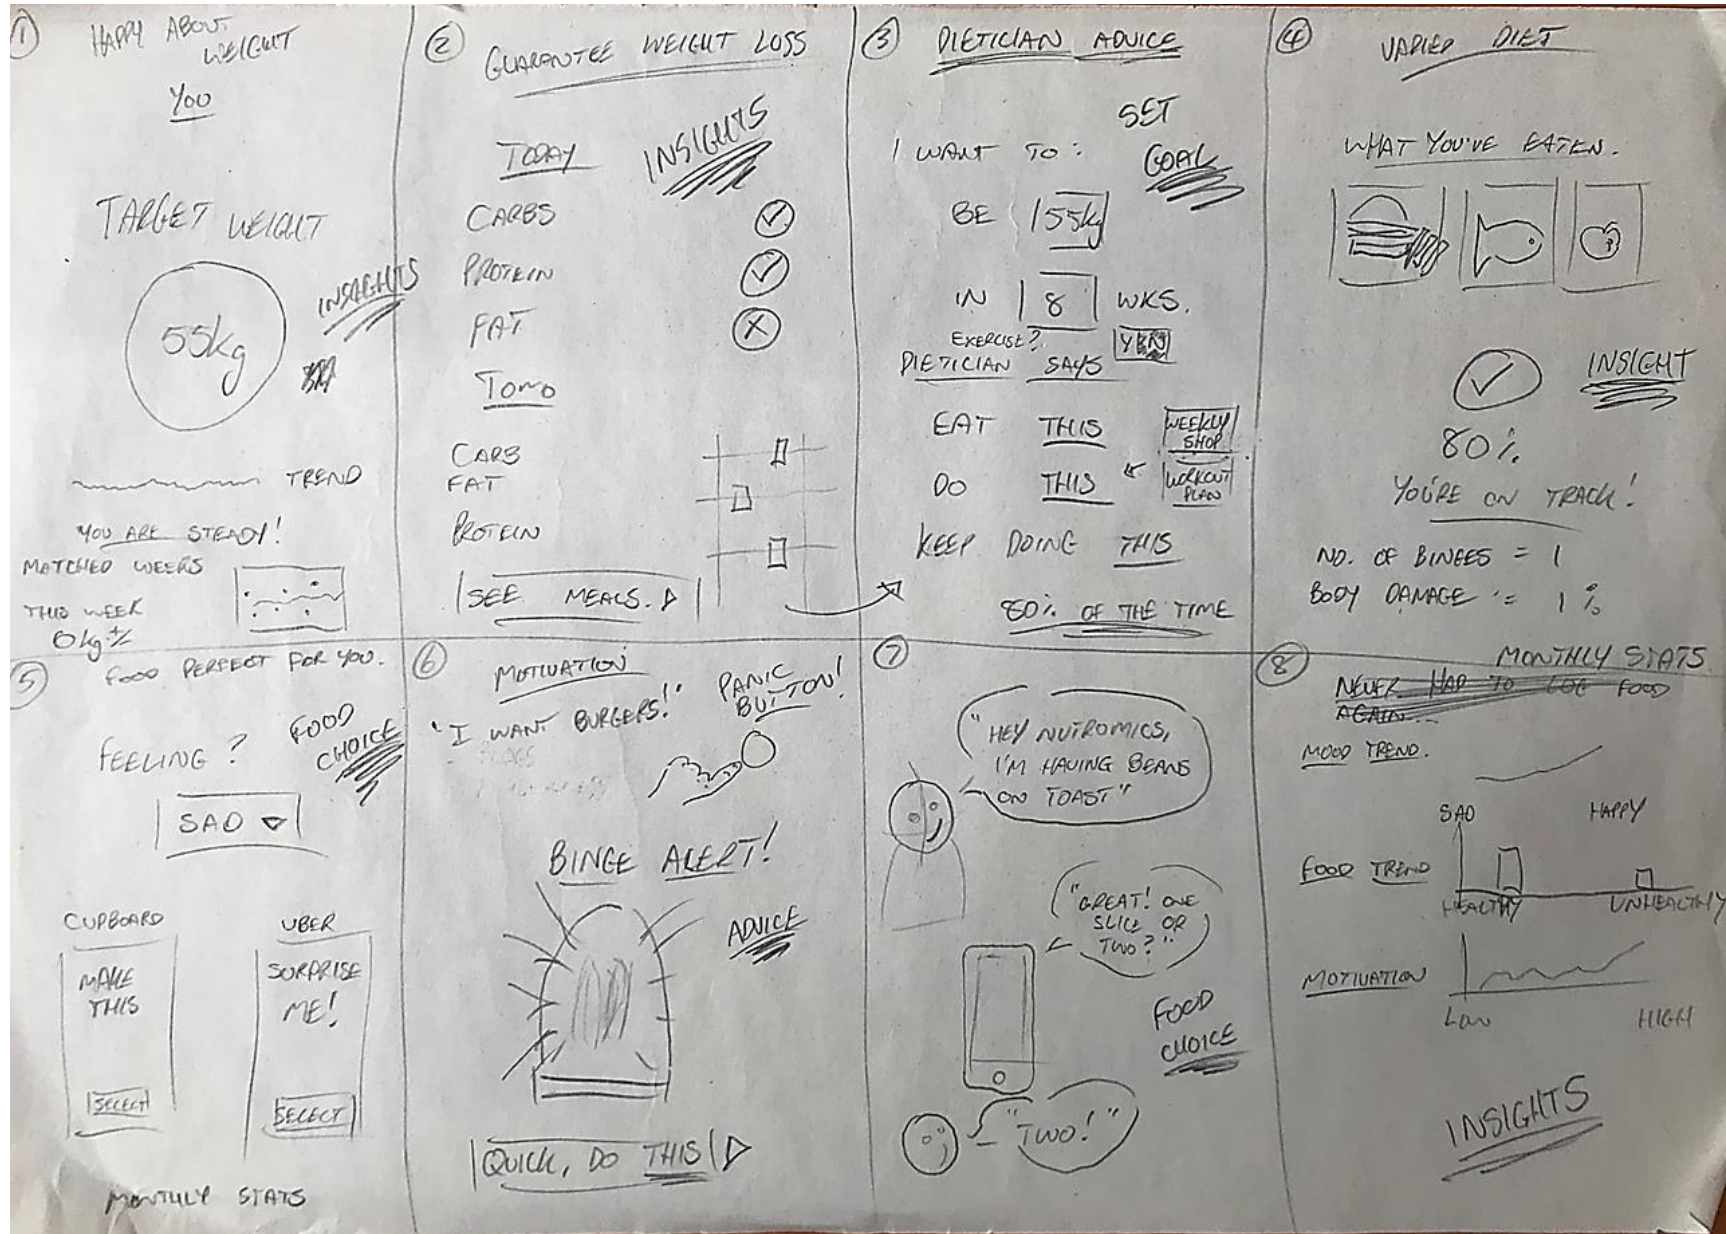 1
HAPPY ABOUT
WEIGHT
YOU
TARGET WEIGHT
55kg
INSIGHTS
TREND
YOU ARE STEADY!
MATCHED WEEKS
THIS WEEK
0kg +/-
2
GUARANTEE WEIGHT LOSS
TODAY
INSIGHTS
CARBS
PROTEIN
FAT
TOMO
CARB
FAT
PROTEIN
SEE MEALS.
3
DIETICIAN ADVICE
SET
GOAL
I WANT TO:
BE 55kg
IN 8 WKS.
EXERCISE?
DIETICIAN SAYS
EAT THIS
WEEKLY
SHOP
DO THIS
WORKOUT
PLAN
KEEP DOING THIS
80% OF THE TIME
4
VARIED DIET
WHAT YOU'VE EATEN.
INSIGHT
80%
YOU'RE ON TRACK!
NO. OF BINGES = 1
BODY DAMAGE = 1%
5
FOOD PERFECT FOR YOU.
FOOD
CHOICE
FEELING?
SAD
CUPBOARD
MAKE
THIS
SELECT
UBER
SURPRISE
ME!
SELECT
MONTHLY STATS
6
MOTIVATION
"I WANT BURGERS!"
PANIC
BUTTON!
BINGE ALERT!
ADVICE
QUICK, DO THIS
7
"HEY NUTROMICS,
I'M HAVING BEANS
ON TOAST"
"GREAT! ONE
SLICE OR
TWO?"
FOOD
CHOICE
"TWO!"
8
MONTHLY STATS
NEVER HAD TO LOG FOOD
AGAIN...
MOOD TREND.
SAD HAPPY
FOOD TREND
HEALTHY UNHEALTHY
MOTIVATION
LOW HIGH
INSIGHTS